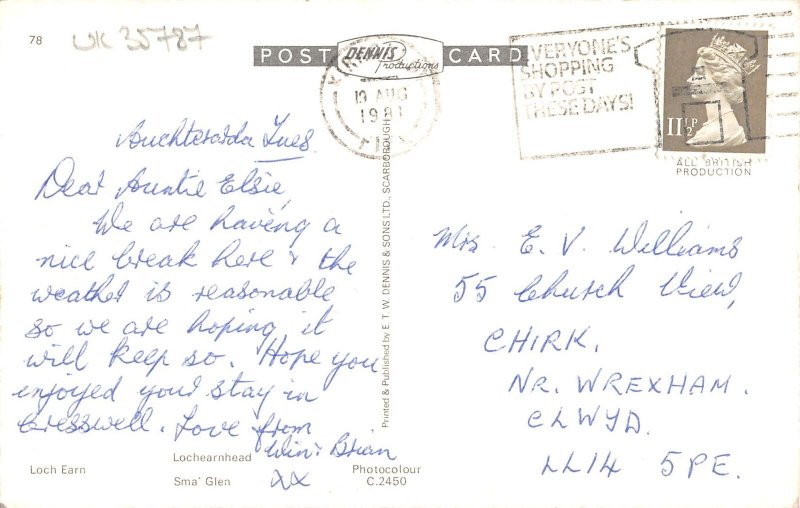 78
UK 35787
POST DENNIS Productions CARD
10 AUG
1981
EVERYONE'S
SHOPPING
BY POST
THESE DAYS!
11½P
ALL BRITISH
PRODUCTION
Auchterarda Tues.
Dear Auntie Elsie,
We are having a
nice break here & the
weather is reasonable
so we are hoping it
will keep so. Hope you
enjoyed your stay in
Cresswell. Love from
Win & Brian
xx
Printed & Published by E. T. W. DENNIS & SONS LTD., SCARBOROUGH
Mrs. E. V. Williams
55 Church View,
CHIRK.
NR. WREXHAM.
CLWYD.
LL14 5PE.
Loch Earn
Lochearnhead
Sma' Glen
Photocolour
C.2450